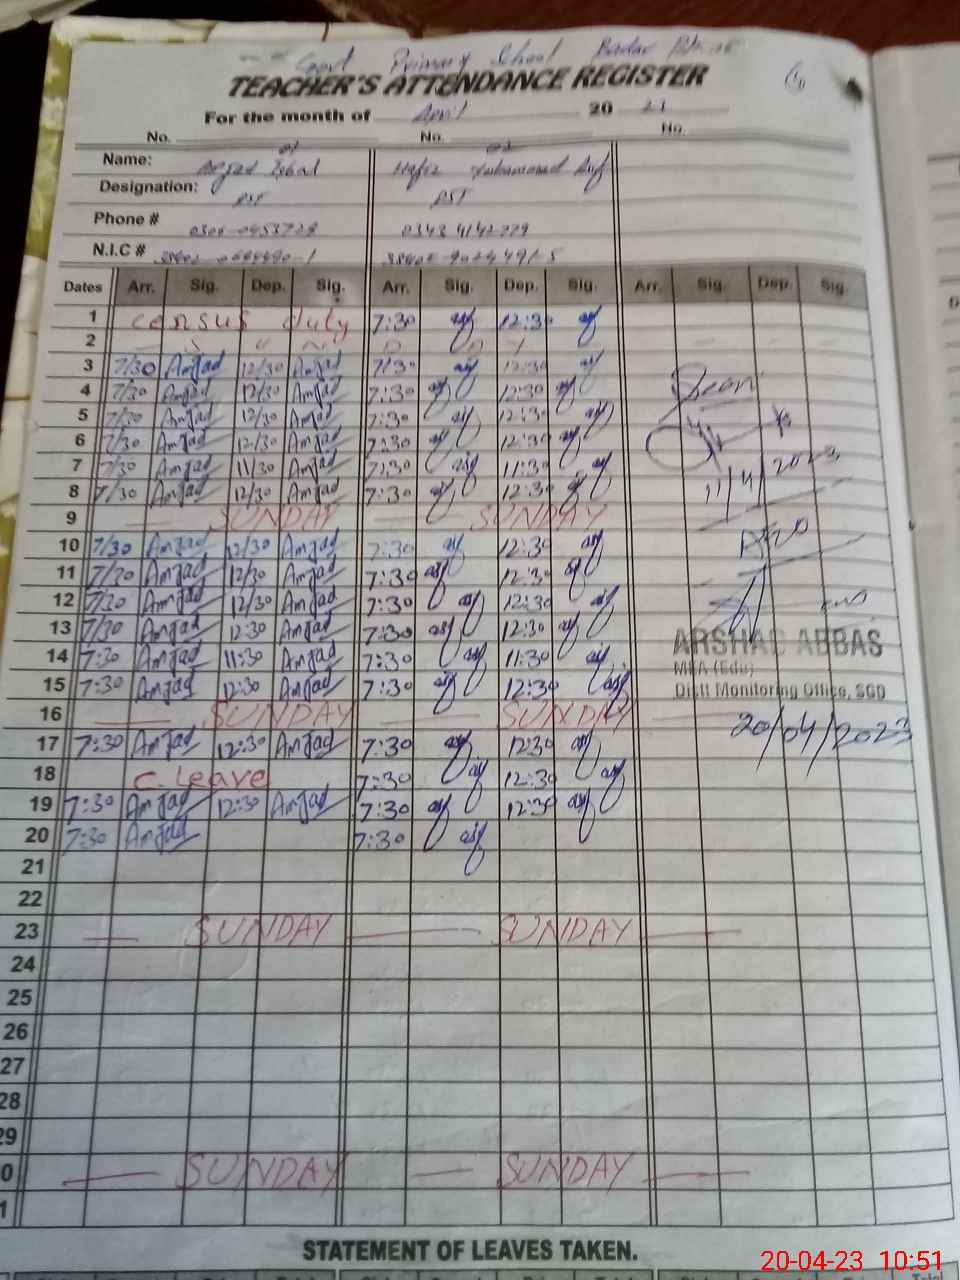 Govt Primary School
TEACHER'S ATTENDANCE REGISTER
For the month of April 20 23
No. No. No.
Name: Amjad Iqbal Hafiz Muhammad Asif
Designation: PST PST
Phone #
N.I.C #
Dates Arr. Sig. Dep. Sig. Arr. Sig. Dep. Sig. Arr. Sig. Dep. Sig.
1 census duty 7:30 asf 12:30 asf
2
3 7/30 Amjad 12/30 Amjad 7/30 asf 12:30 asf
4 7/30 Amjad 12/30 Amjad 7:30 asf 12:30 asf
5 7/30 Amjad 12/30 Amjad 7:30 asf 12:30 asf
6 7/30 Amjad 12/30 Amjad 7:30 asf 12:30 asf
7 7/30 Amjad 11/30 Amjad 7:30 asf 11:30 asf
8 7/30 Amjad 12/30 Amjad 7:30 asf 12:30 asf
9 SUNDAY SUNDAY
10 7/30 Amjad 12/30 Amjad 7:30 asf 12:30 asf
11 7/30 Amjad 12/30 Amjad 7:30 asf 12:30 asf
12 7/30 Amjad 12/30 Amjad 7:30 asf 12:30 asf
13 7/30 Amjad 12:30 Amjad 7:30 asf 12:30 asf
14 7:30 Amjad 11:30 Amjad 7:30 asf 11:30 asf
15 7:30 Amjad 12:30 Amjad 7:30 asf 12:30 asf
16 SUNDAY SUNDAY
17 7:30 Amjad 12:30 Amjad 7:30 asf 12:30 asf
18 C. Leave 7:30 asf 12:30 asf
19 7:30 Amjad 12:30 Amjad 7:30 asf 12:30 asf
20 7:30 Amjad 7:30 asf
21
22
23 SUNDAY SUNDAY
24
25
26
27
28
29
0 SUNDAY SUNDAY
1
11/4/2023
ARSHAD ABBAS
MEA (Edu)
Distt Monitoring Office, SGD
20/04/2023
STATEMENT OF LEAVES TAKEN.
20-04-23 10:51